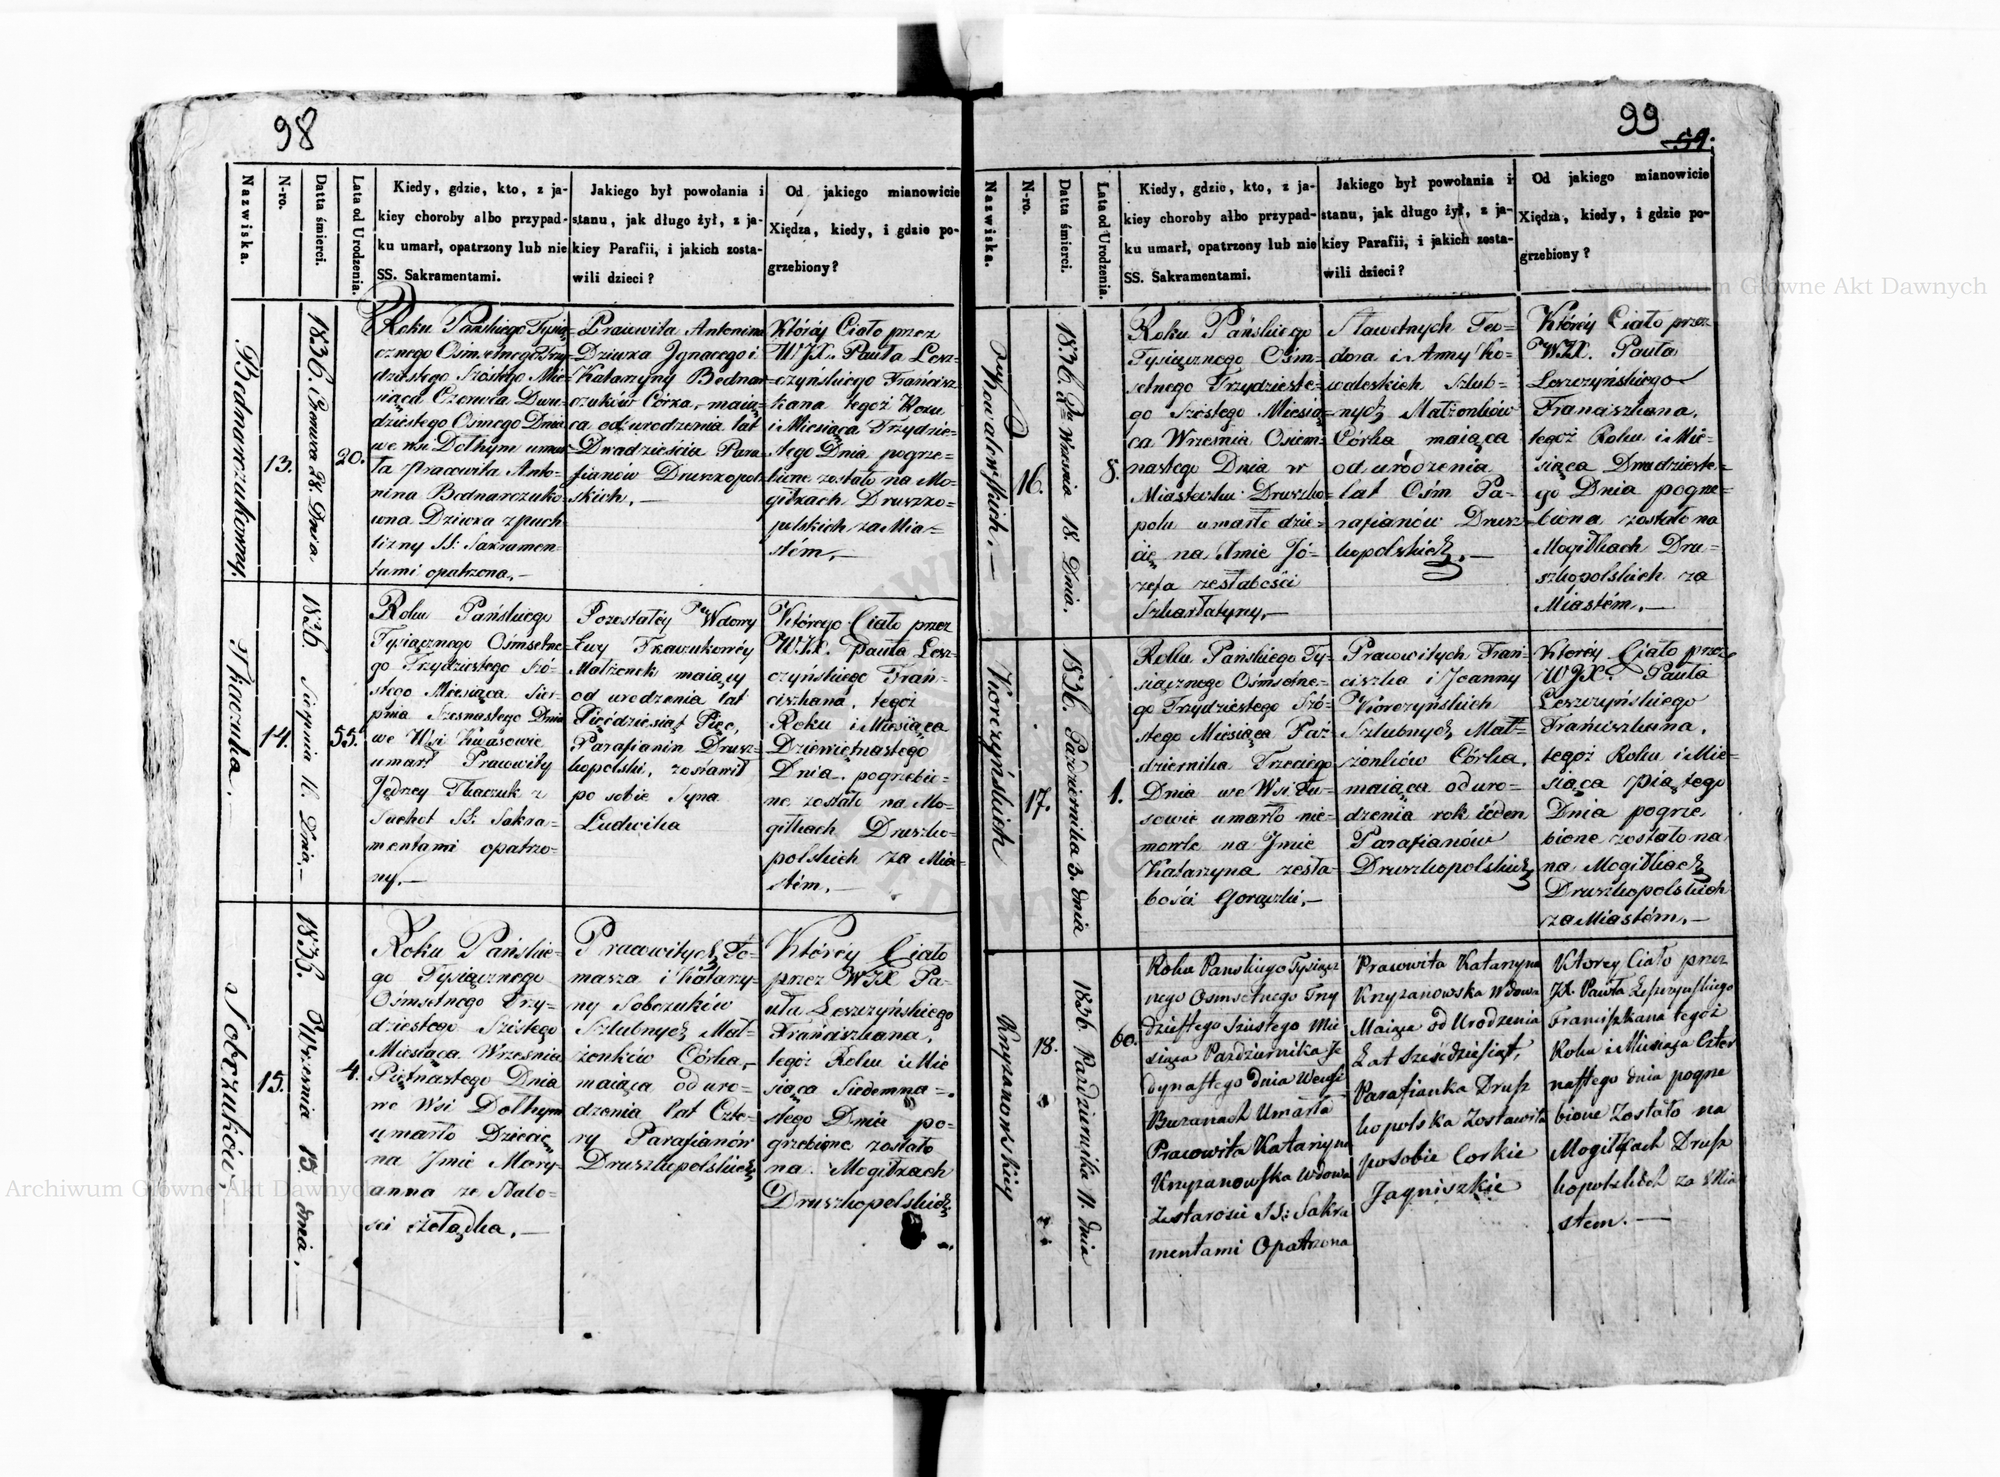 98
Nazwiska.
N-ro.
Datta śmierci.
Lata od Urodzenia.
Kiedy, gdzie, kto, z ja-
kiey choroby albo przypad-
ku umarł, opatrzony lub nie
SS. Sakramentami.
Jakiego był powołania i
stanu, jak długo żył, z ja-
kiey Parafii, i jakich zosta-
wili dzieci?
Od jakiego mianowicie
Xiędza, kiedy, i gdzie po-
grzebiony?
Bednarczukowny.
13.
1836. Czerwca 28. Dnia.
20.
Roku Pańskiego Tysią-
cznego Ośmsetnego Trzy-
dziestego Szóstego Mie-
siąca Czerwca Dwu-
dziestego Osmego Dnia
we wsi Dołhym umar-
ła pracowita Anto-
nina Bednarczuko-
wna Dziwka z puch-
lizny SS: Sakramen-
tami opatrzona.—
Pracowita Antonina
Dziwka Jgnacego i
Katarzyny Bednar-
czuków Córka, maią-
ca od urodzenia lat
Dwadzieścia Para-
fianów Druszkopol-
skich.—
Któréy Ciało przez
WJX. Pawła Lesz-
czyńskiego Francisz-
kana tegoż Roku
i Miesiąca Trzydzie-
tego Dnia pogrze-
bione zostało na Mo-
giłkach Druszko-
polskich za Mia-
stém.—
Tkaczuka.
14.
1836. Sierpnia 16. Dnia.—
55.
Roku Pańskiego
Tysiącznego Ośmsetne-
go Trzydziestego Szó-
stego Miesiąca Sier-
pnia Szesnastego Dnia
we Wsi Kwasowie
umarł Pracowity
Jędrzey Tkaczuk z
Suchot SS: Sakra-
mentami opatrzo-
ny.—
Pozostałéy Wdowy
Ewy Tkaczukowéy
Małżonek maiący
od urodzenia lat
Pięćdziesiąt Pięć,
Parafianin Drusz-
kopolski, zostawił
po sobie Syna
Ludwika
Którego Ciało przez
WJX. Pawła Lesz-
czyńskiego Fran-
ciszkana, tegoż
Roku i Miesiąca
Dziewiętnastego
Dnia, pogrzebio-
ne zostało na Mo-
giłkach Druszko-
polskich za Mia-
stém.—
Sobczuków,
15.
1836. Września 15 dnia.—
4.
Roku Pańskie-
go Tysiącznego
Ośmsetnego Trzy-
dziestego Szóstego
Miesiąca Września
Piętnastego Dnia
we Wsi Dołhym
umarło Dziecię
na Jmie Mary-
anna ze słabo-
ści żołądka.—
Pracowitych To-
masza i Katarzy-
ny Sobczuków
Szlubnych Mał-
żonków Córka,
maiąca od uro-
dzenia lat Czte-
ry Parafianów
Druszkopolskich
Któréy Ciało
przez WJX Pa-
wła Leszczyńskiego
Franciszkana,
tegoż Roku i Mie
siąca Siedemna-
stego Dnia po-
grzebione zostało
na Mogiłkach
Druszkopolskich
99
59.
Nazwiska.
N-ro.
Datta śmierci.
Lata od Urodzenia.
Kiedy, gdzie, kto, z ja-
kiey choroby albo przypad-
ku umarł, opatrzony lub nie
SS. Sakramentami.
Jakiego był powołania i
stanu, jak długo żył, z ja-
kiey Parafii, i jakich zosta-
wili dzieci?
Od jakiego mianowicie
Xiędza, kiedy, i gdzie po-
grzebiony?
Kowalewskich.—
16.
1836. Września 18. Dnia.
8.
Roku Pańskiego
Tysiącznego Ośm-
setnego Trzydzieste-
go Szóstego Miesią-
ca Września Osiem-
nastego Dnia w
Miasteczku Druszko-
polu umarło dzie-
cię na Jmie Jó-
zefa ze słabości
Szkarlatyny.—
Sławetnych Teo-
dora i Anny Ko-
waleskich Szlub-
nych Małżonków
Córka maiąca
od uródzenia
lat Ośm Pa-
rafianów Drusz-
kopolskich.—
Któréy Ciało przez
WJX. Pawła
Leszczyńskiego
Franciszkana,
tegoż Roku i Mie-
siąca Dwudzieste-
go Dnia pogrze-
biona zostało na
Mogiłkach Dru-
szkopolskich za
Miastém.—
Korczyńskich
17.
1836. Października 3. dnia
1.
Roku Pańskiego Ty-
siącznego Ośmsetne-
go Trzydziestego Szó-
stego Miesiąca Paź-
dziernika Trzeciego
Dnia we Wsi
sowie umarło nie-
mowle na Jmie
Katarzyna ze sła-
bości Gorączki.—
Pracowitych Fran-
ciszka i Joanny
Kórczyńskich
Szlubnych Mał-
żonków Córka,
maiąca od uro-
dzenia rok ieden
Parafianów
Druszkopolskich
Któréy Ciało przez
WJX. Pawła
Leszczyńskiego
Franciszkana,
tegoż Roku i Mie-
siąca piątego
Dnia pogrze
bione zostało na
na Mogiłkach
Druszkopolskich
za Miastém.—
Krzyzanowskiey
18.
1836. Pazdziernika 11. dnia
60.
Roku Panskiego Tysiącz
nego Osmsetnego Trzy
dziestego Szustego Mie
siąca Pazdziernika Je
dynastego dnia We wsi
Buzanach Umarła
Pracowita Katarzyna
Krzyzanowska Wdowa
Ze starosci SS: Sakra
mentami Opatrzona
Pracowita Katarzyna
Krzyzanowska Wdowa
Maiąca od Urodzenia
Lat Sześcdziesiąt,
Parafianka Drusz
kopolska Zostawiła
po sobie Corkie
Jagniszkie
Ktorey Ciało przez
JX. Pawła Leszczynskiego
Franciszkana tegoż
Roku i Miesiąca Czter
nastego dnia pogrze
bione Zostało na
Mogiłkach Drusz
kopolskich za Mia
stem.—
Archiwum Główne Akt Dawnych
Archiwum Główne Akt Dawnych